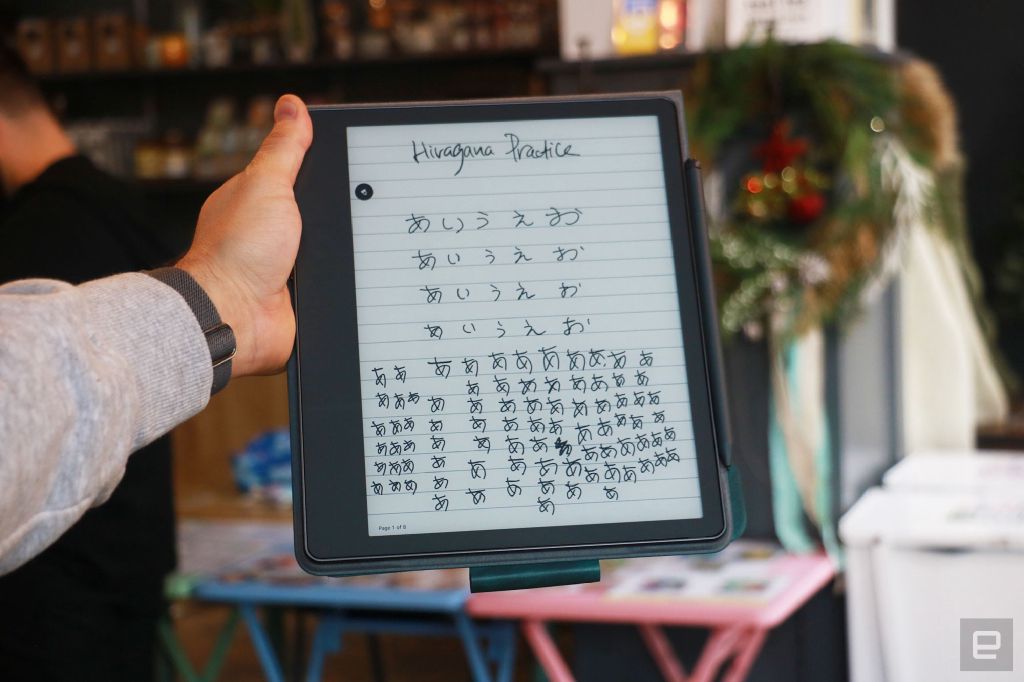 Hiragana Practice
あ い う え お
あ い う え お
あ い う え お
あ い う え お
あ あ あ あ あ あ あ あ あ あ あ
あ あ あ あ あ あ あ あ
あ あ あ あ あ あ あ あ あ あ あ あ あ
あ あ あ あ あ あ あ あ あ あ あ あ あ
あ あ あ あ あ あ あ あ あ あ あ あ あ
あ あ あ あ あ あ あ あ あ あ あ あ あ あ
あ あ あ あ あ あ あ あ あ
あ あ
Page 1 of 8
e